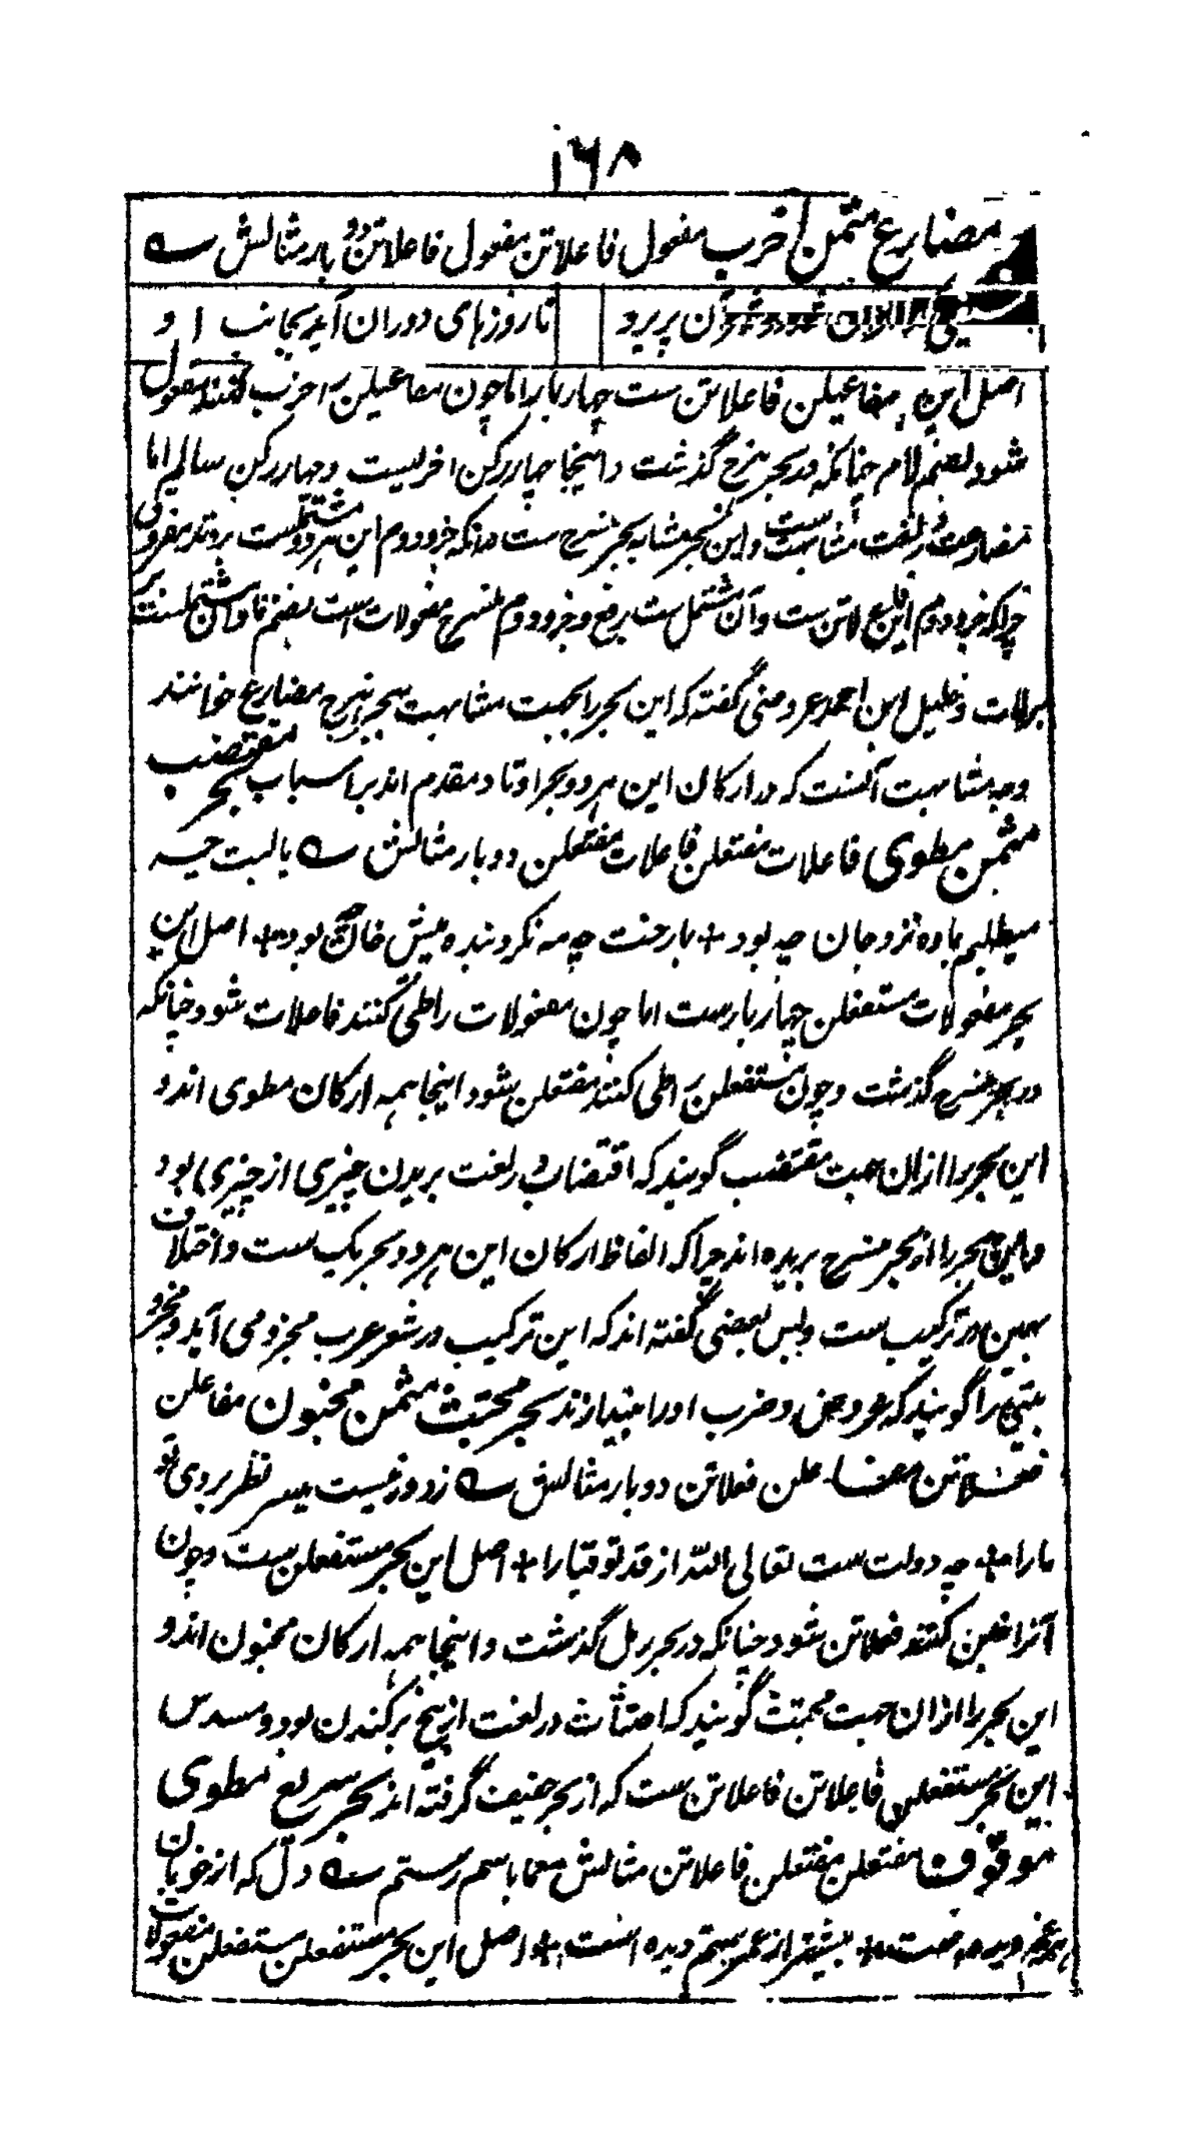 ۱۶۸
مضارع مثمن اخرب مفعول فاعلاتن مفعول فاعلاتن دو بار مثالش ــه
آن پریرو تا روزهای دوران آید بجانب او
اصل این مفاعیلن فاعلاتن ست چهار بار اما چون مفاعیلن را خرب کنند مفعول
شود بضم لام چنانکه در بحر هزج گذشت و اینجا چهار رکن اخرب ست و چهار رکن سالم اما
مضارعت در لغت مشابهت ست و این بحر مشابه بحر منسرح ست درانکه جزو دوم این هر دو مشتمل ست بر وتد مفروق
چراکه جزو دوم این فاع لاتن ست و آن مشتمل ست بر فاع و جزو دوم منسرح مفعولات است بضم تا و آن مشتمل ست
برلات و خلیل ابن احمد عروضی گفته که این بحر را بجهت مشابهت ببحر هزج مضارع خوانند
وجه مشابهت آنست که در ارکان این هر دو بحر اوتاد مقدم اند بر اسباب بحر مقتضب
مثمن مطوی فاعلات مفتعلن فاعلات مفتعلن دو بار مثالش ــه با لبت چه
میطلبم باده نزد جان چه بود + با رخت چه مه نگرد بنده پیش خان چه بود + اصل این
بحر مفعولات مستفعلن چهار بارست اما چون مفعولات را طی کنند فاعلات شود چنانکه
در بحر منسرح گذشت و چون مستفعلن را طی کنند مفتعلن شود اینجا همه ارکان مطوی اند و
این بحر را ازان جهت مقتضب گویند که اقتضاب در لغت بریدن چیزی از چیزی بود
و این بحر را از بحر منسرح بریده اند چراکه الفاظ ارکان این هر دو بحر یک ست و اختلاف
همین در ترکیب ست و بس بعضی گفته اند که این ترکیب در شعر عرب مجزو می آید و مجزو
بیتی را گویند که عروض و ضرب او را بیندازند بحر مجتث مثمن مخبون مفاعلن
فعلاتن مفاعلن فعلاتن دو بار مثالش ــه ز دور نیست میسر نظر بروی تو
مارا + چه دولت ست تعالی الله از قد تو قبارا + اصل این بحر مستفعلن ست و چون
آنرا خبن کنند فعلاتن شود چنانکه در بحر رمل گذشت و اینجا همه ارکان مخبون اند و
این بحر را ازان جهت مجتث گویند که اجتثاث در لغت از بیخ برکندن بود و مسدس
این بحر مستفعلن فاعلاتن فاعلاتن ست که از بحر خفیف گرفته اند بحر سریع مطوی
موقوف مفتعلن مفتعلن فاعلاتن مثالش معما باسم رستم ــه دل که از خوبان
همه غم دیده است + بیشتر از عمر ستم دیده است + و اصل این بحر مستفعلن مستفعلن مفعولات